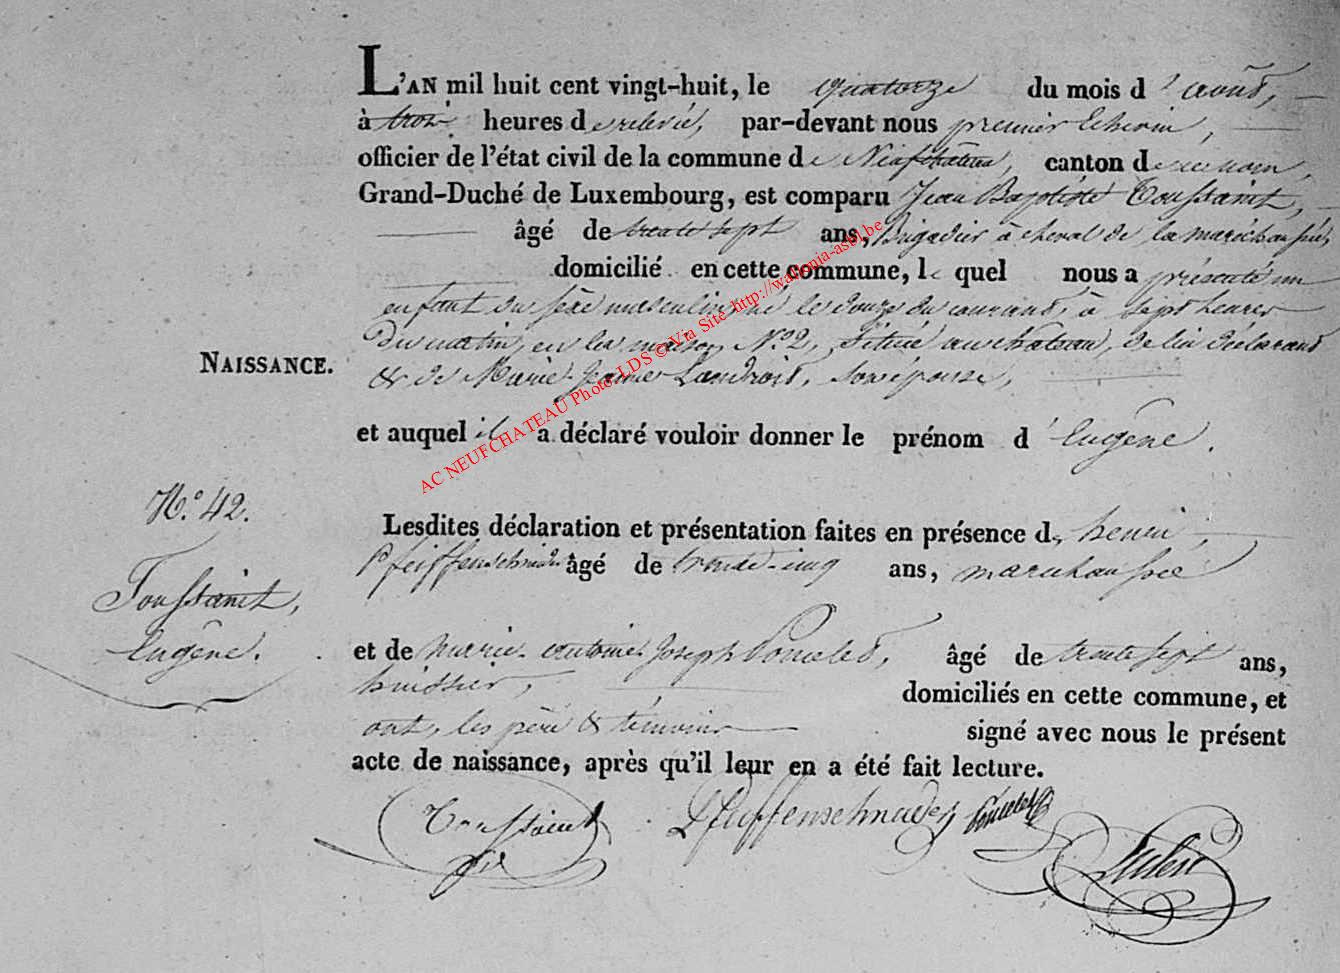 L'AN mil huit cent vingt-huit, le quatorze du mois d' août,
à trois heures de relevée, par-devant nous premier Echevin,
officier de l'état civil de la commune de Neufchâteau, canton de ce nom,
Grand-Duché de Luxembourg, est comparu Jean Baptiste Toussaint,
âgé de trente sept ans, Brigadier à cheval de la maréchaussée,
domicilié en cette commune, le quel nous a présenté un
enfant du sexe masculin, né le douze du courant, à sept heures
du matin, en la maison N.o 2, située au château, de lui déclarant
NAISSANCE.
& de Marie Jeanne Landroit, son épouse,
et auquel il a déclaré vouloir donner le prénom d' Eugêne.
AC NEUFCHATEAU Photo-LDS © Via Site http://wallonia-asbl.be
N.o 42.
Toussaint,
Eugêne.
Lesdites déclaration et présentation faites en présence de henri,
Pfeiffenschneider âgé de trente-cinq ans, marechaussée
et de marie-antoine Joseph Poncelet, âgé de trente sept ans,
huissier, domiciliés en cette commune, et
ont, les père & témoins signé avec nous le présent
acte de naissance, après qu'il leur en a été fait lecture.
Toussaint Pfeiffenschneider Poncelet